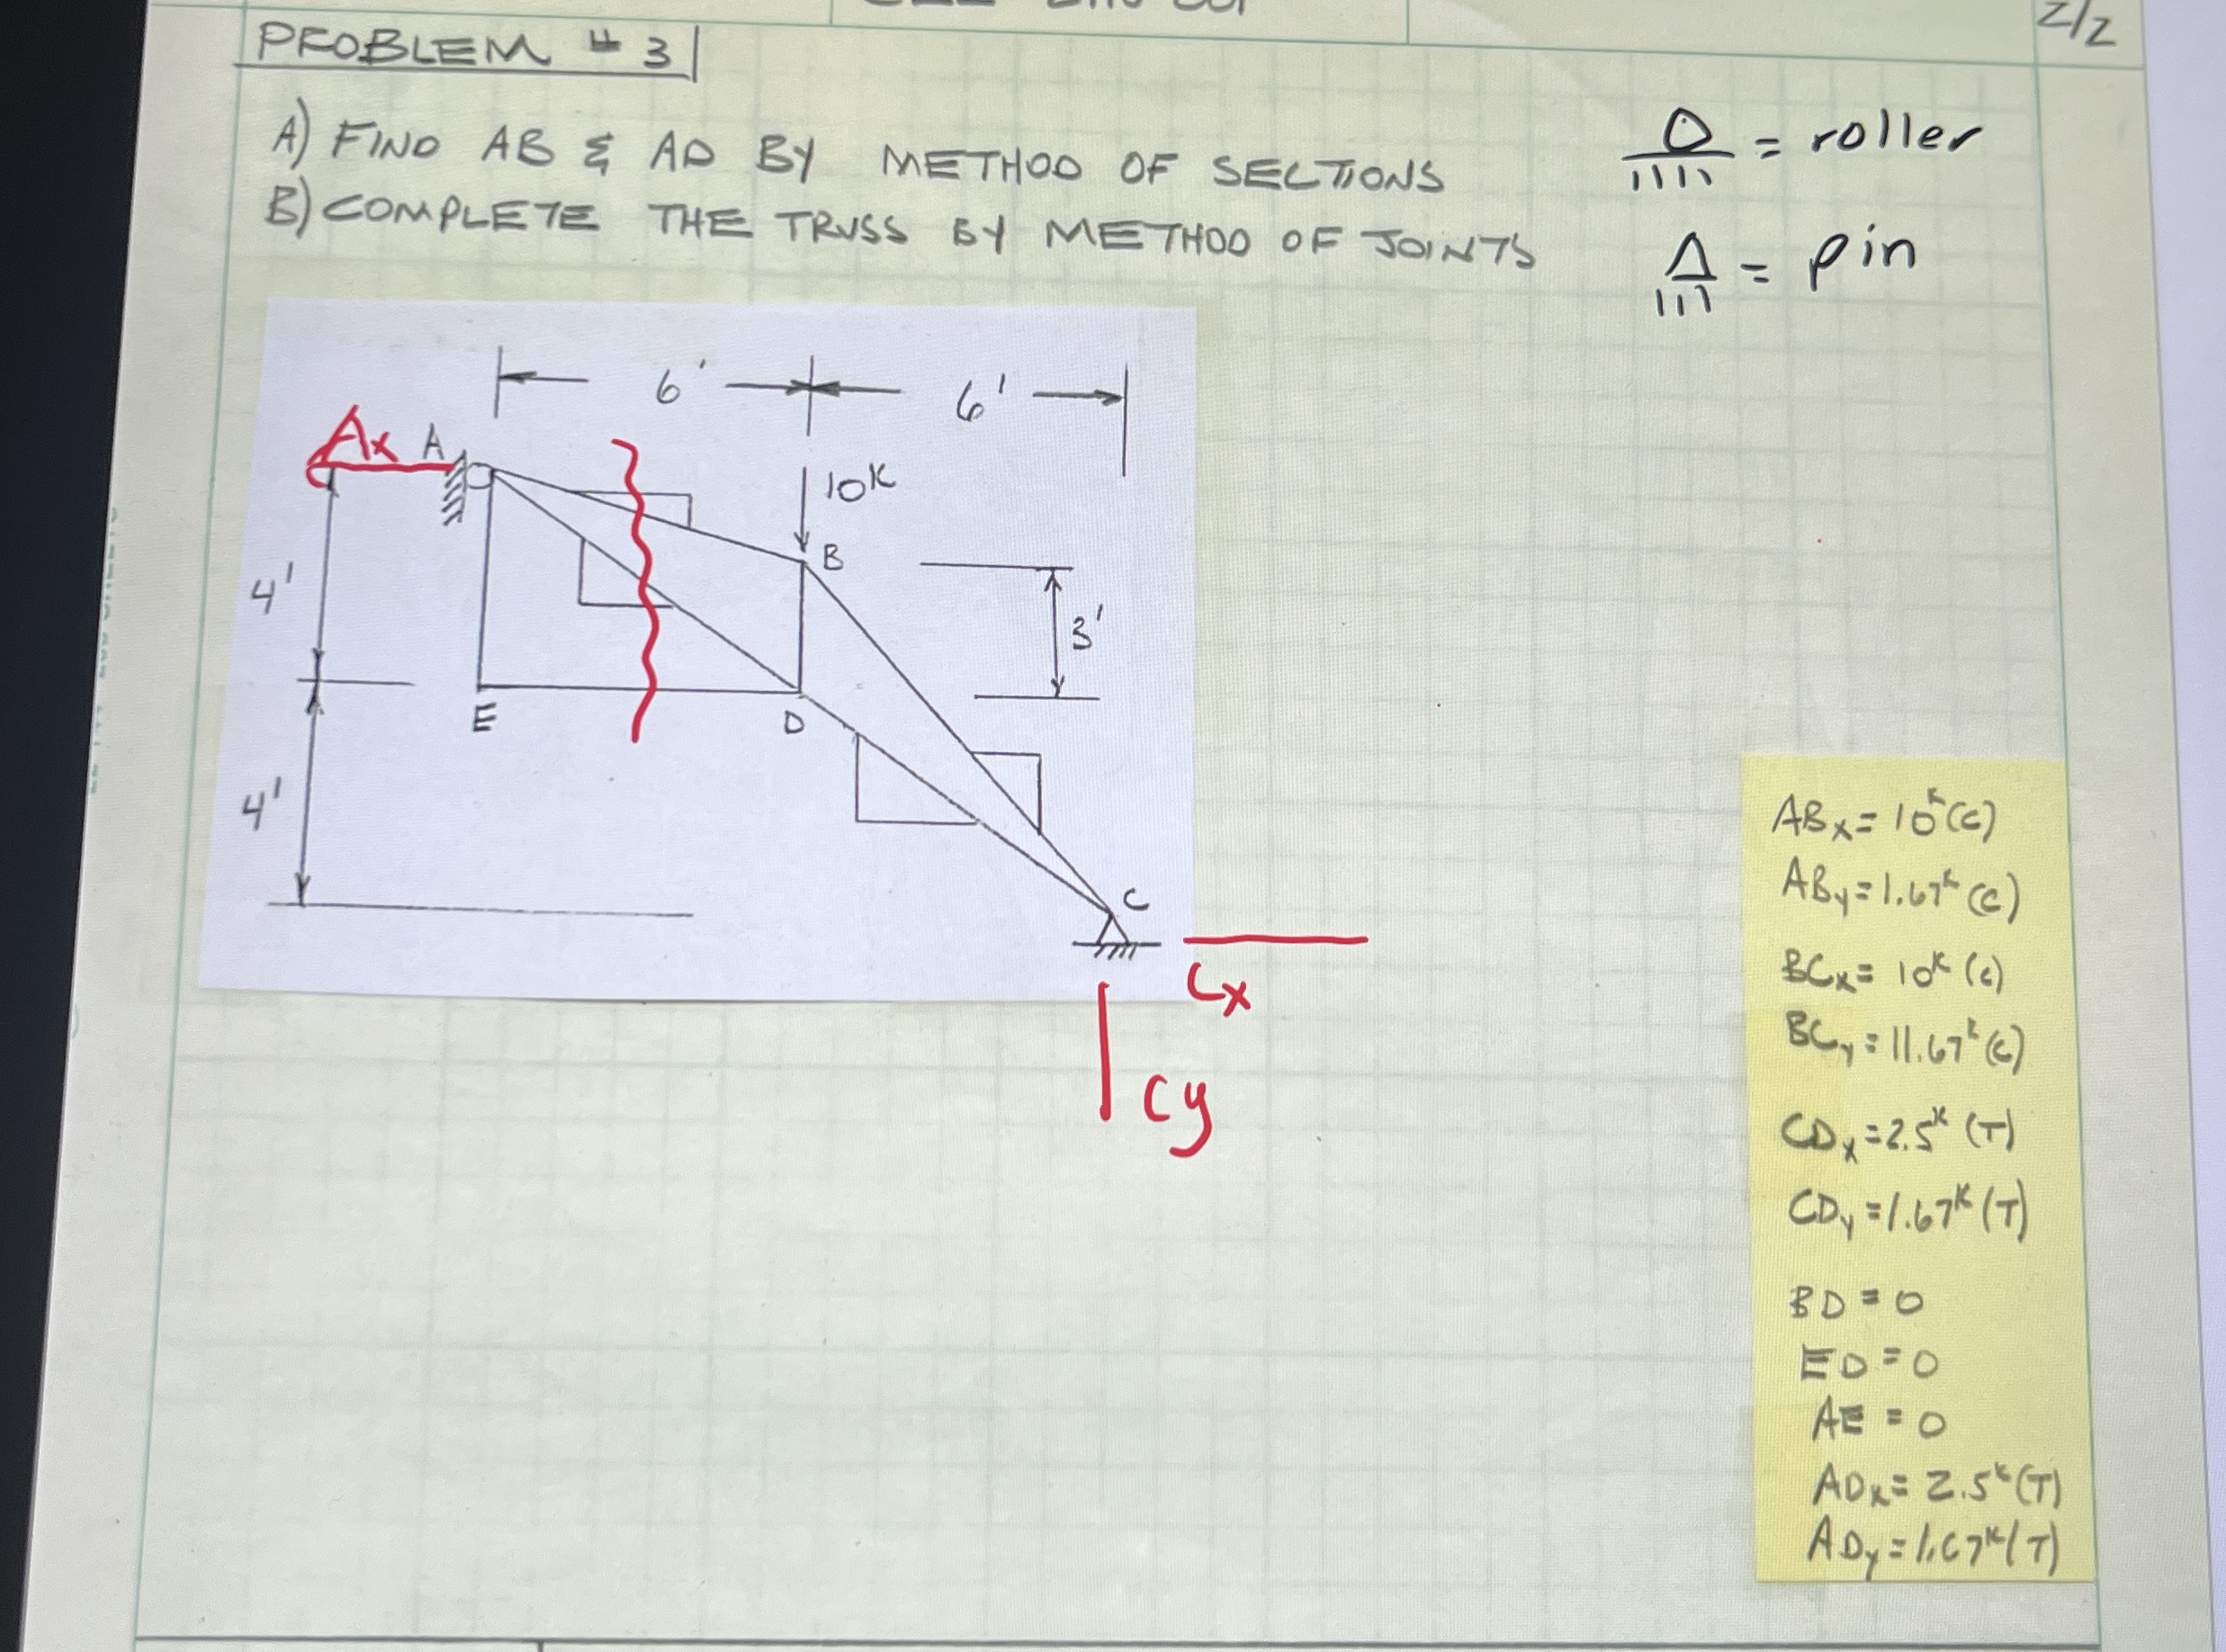 2/2
PROBLEM # 3
A) FIND AB & AD BY METHOD OF SECTIONS
B) COMPLETE THE TRUSS BY METHOD OF JOINTS
= roller
= pin
6' 6'
Ax A
10K
B
4'
3'
E D
4'
C
Cx
Cy
ABx = 10K (C)
ABy = 1.67K (C)
BCx = 10K (C)
BCy = 11.67K (C)
CDx = 2.5K (T)
CDy = 1.67K (T)
BD = 0
ED = 0
AE = 0
ADx = 2.5K (T)
ADy = 1.67K (T)